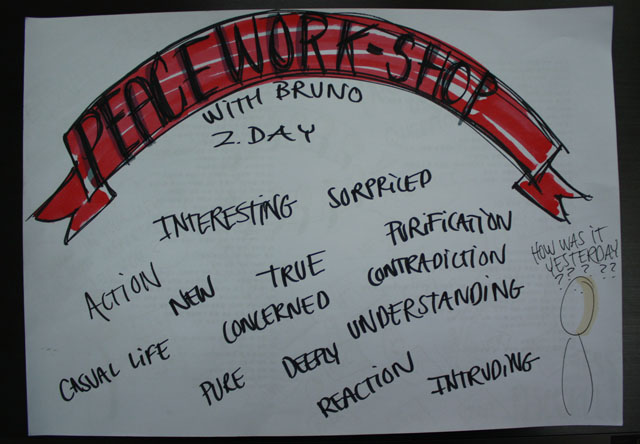 PEACEWORK-SHOP
WITH BRUNO
2.DAY
INTERESTING SORPRICED
PURIFICATION
ACTION NEW TRUE CONTRADICTION
CONCERNED
CASUAL LIFE PURE DEEPLY UNDERSTANDING
REACTION INTRUDING
HOW WAS IT
YESTERDAY
?? ? ??